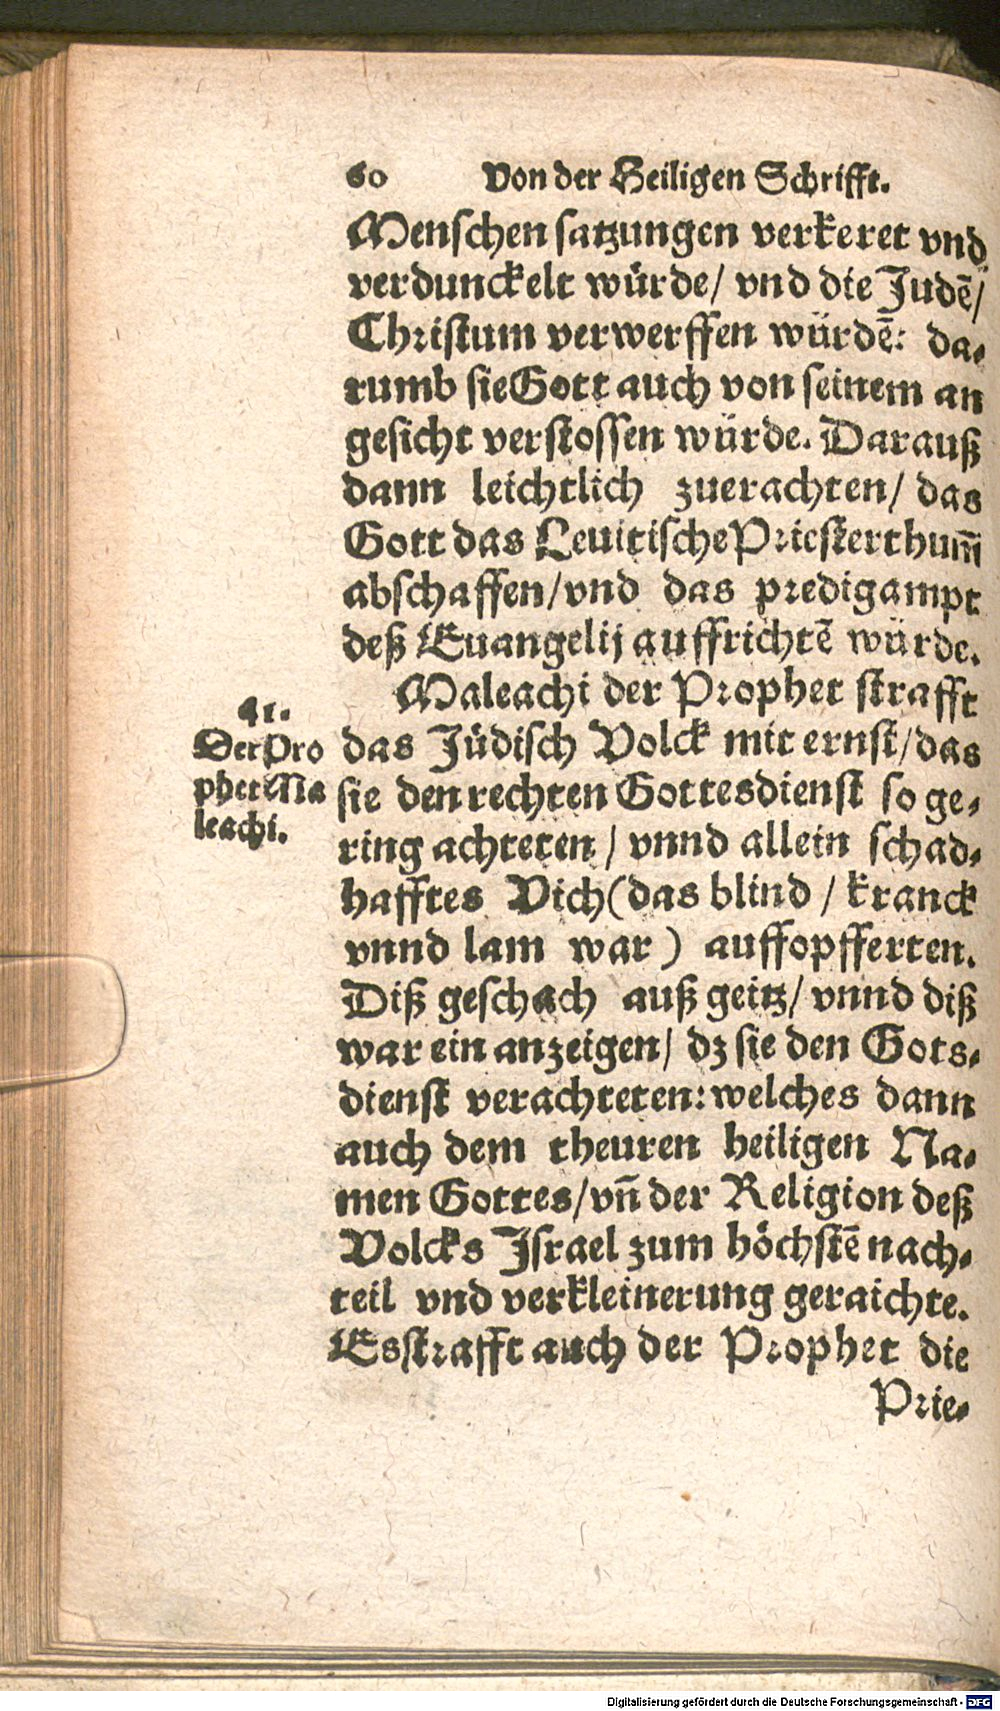 60 Von der Heiligen Schrifft.
Menschen satzungen verkeret vnd
verdunckelt würde/ vnd die Judẽ/
Christum verwerffen würdẽ: da-
rumb sie Gott auch von seinem an
gesicht verstossen würde. Darauß
dann leichtlich zuerachten/ das
Gott das Leuitische Priesterthum̃
abschaffen/ vnd das predigampt
deß Euangelij auffrichtẽ würde.
Maleachi der Prophet strafft
41.
Der Pro
phet Ma
leachi.
das Jüdisch Volck mit ernst/ das
sie den rechten Gottesdienst so ge-
ring achteten/ vnnd allein schad-
hafftes Vich (das blind/ kranck
vnnd lam war) auffopfferten.
Diß geschach auß geitz/ vnnd diß
war ein anzeigen/ dz sie den Gots-
dienst verachteten: welches dann
auch dem theuren heiligen Na-
men Gottes/ vñ der Religion deß
Volcks Jsrael zum höchstẽ nach-
teil vnd verkleinerung geraichte.
Es strafft auch der Prophet die
Prie-
Digitalisierung gefördert durch die Deutsche Forschungsgemeinschaft - DFG